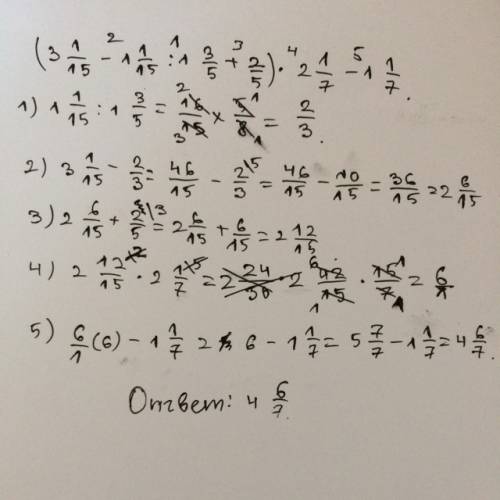 (3 1/15 - 1 1/15 : 1 3/5 + 2/5) · 2 1/7 - 1 1/7.
1) 1 1/15 : 1 3/5 = 16/15 × 5/8 = 2/3.
2) 3 1/15 - 2/3 = 46/15 - 2/3 = 46/15 - 10/15 = 36/15 = 2 6/15
3) 2 6/15 + 2/5 = 2 6/15 + 6/15 = 2 12/15
4) 2 12/15 · 2 1/7 = 42/15 · 15/7 = 6/1
5) 6/1 (6) - 1 1/7 = 6 - 1 1/7 = 5 7/7 - 1 1/7 = 4 6/7.
Ответ: 4 6/7.